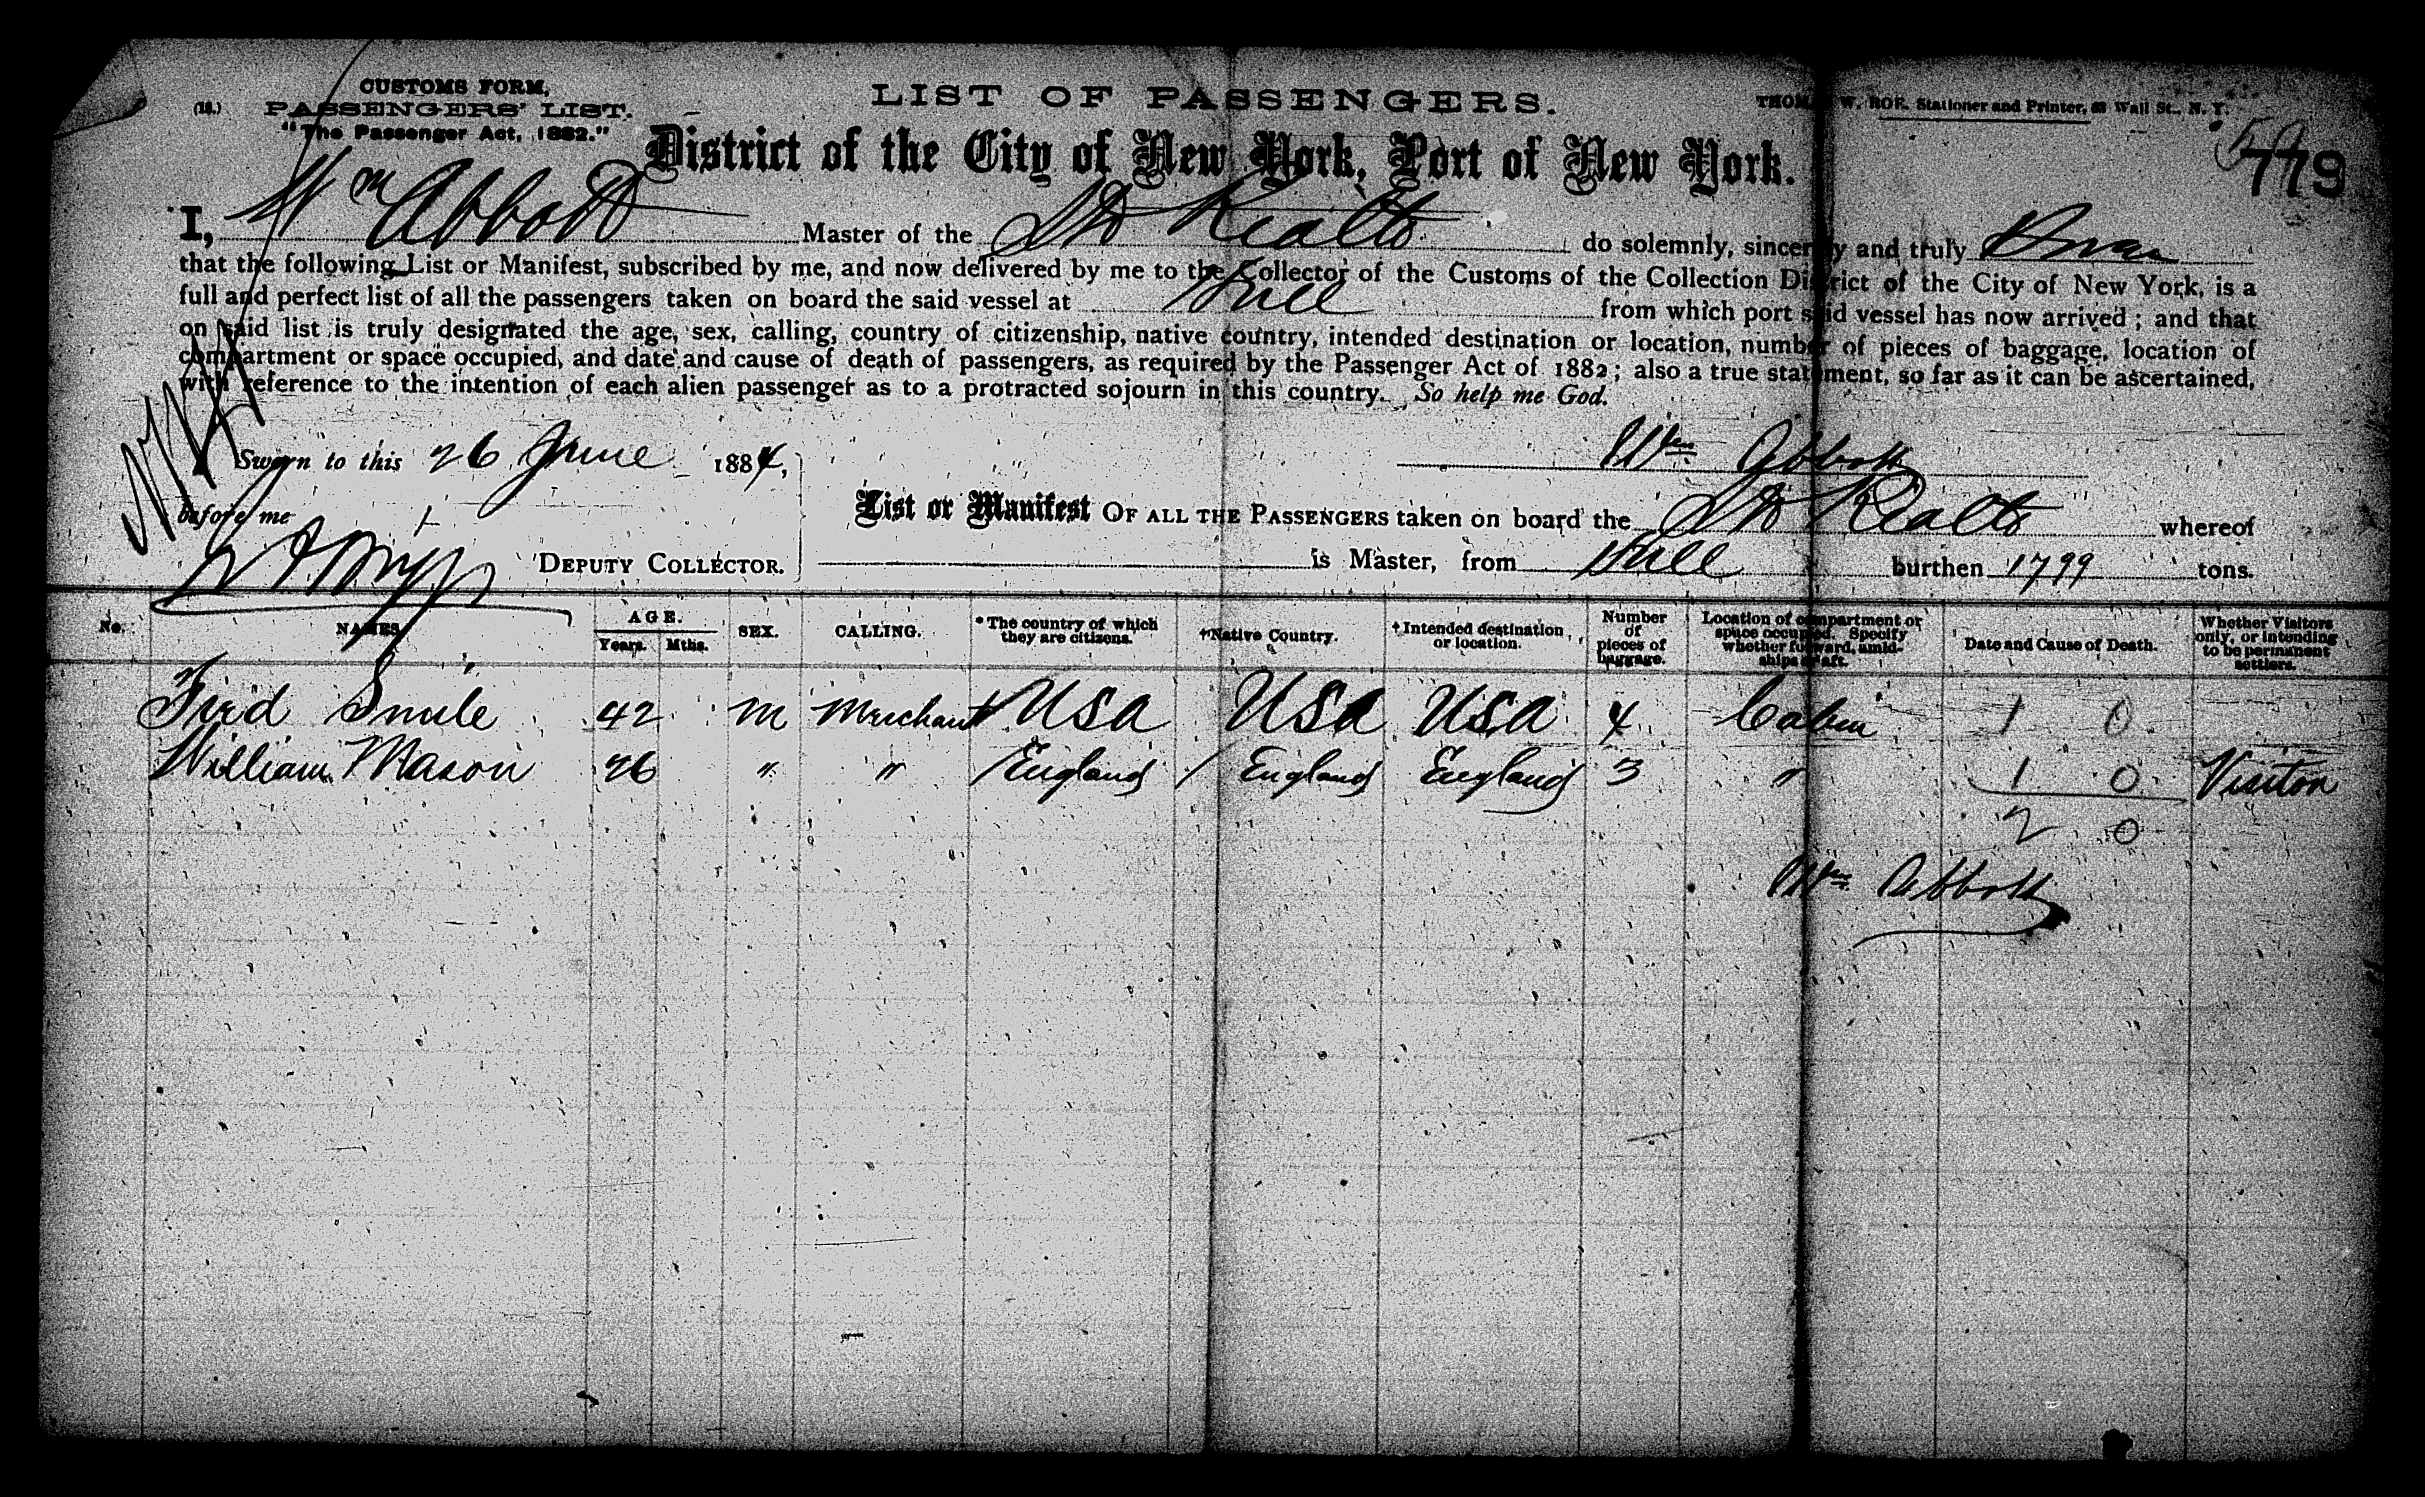 CUSTOMS FORM,
(18.) PASSENGERS' LIST.
"The Passenger Act, 1882."
LIST OF PASSENGERS.
W. ROE, Stationer and Printer, Wall St., N. Y.
District of the City of New York, Port of New York.
779
I, Wm Abbott Master of the Str Rialto do solemnly, sincerely and truly Swear
that the following List or Manifest, subscribed by me, and now delivered by me to the Collector of the Customs of the Collection District of the City of New York, is a
full and perfect list of all the passengers taken on board the said vessel at Hull from which port said vessel has now arrived; and that
on said list is truly designated the age, sex, calling, country of citizenship, native country, intended destination or location, number of pieces of baggage, location of
compartment or space occupied, and date and cause of death of passengers, as required by the Passenger Act of 1882; also a true statement, so far as it can be ascertained,
with reference to the intention of each alien passenger as to a protracted sojourn in this country. So help me God.
Sworn to this 26 June 1884,
Wm Abbott
before me
DEPUTY COLLECTOR.
List or Manifest OF ALL THE PASSENGERS taken on board the Str Rialto whereof
is Master, from Hull burthen 1799 tons.
No. NAMES. AGE. Years. Mths. SEX. CALLING. *The country of which they are citizens. †Native Country. †Intended destination or location. Number of pieces of baggage. Location of compartment or space occupied. Specify whether forward, amidships or aft. Date and Cause of Death. Whether Visitors only, or intending to be permanent settlers.
Fred 42 M Merchant USA USA USA 4 Cabin 1 0
William Mason 26 " " England England England 3 " 1 0 Visitor
2 0
Wm Abbott